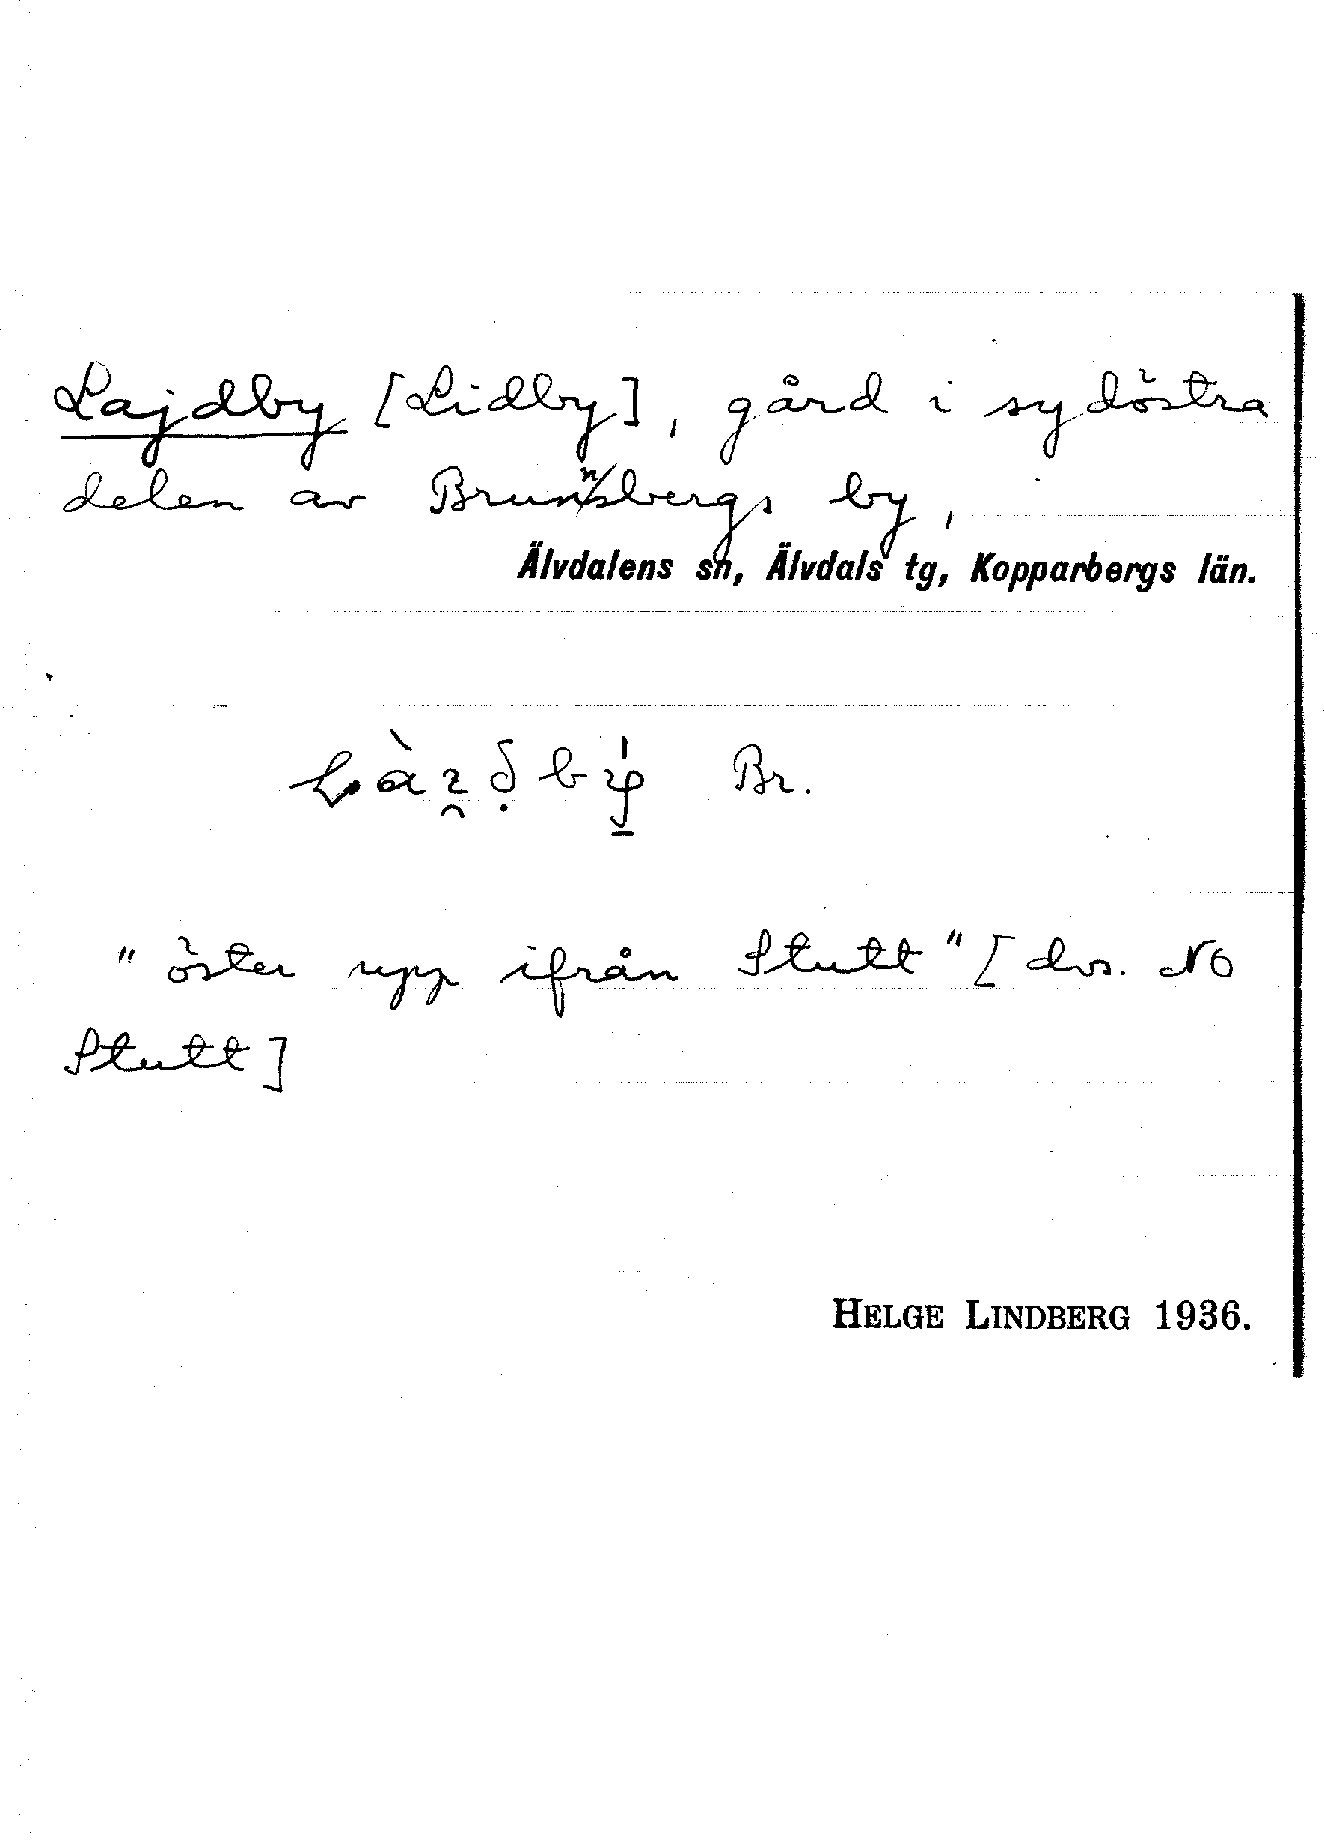 Lajdby [Lidby], gård i sydöstra
delen av Brunnsbergs by,
Älvdalens sn, Älvdals tg, Kopparbergs län.
Br.
"öster upp ifrån Stutt" [dvs. NO
Stutt]
HELGE LINDBERG 1936.